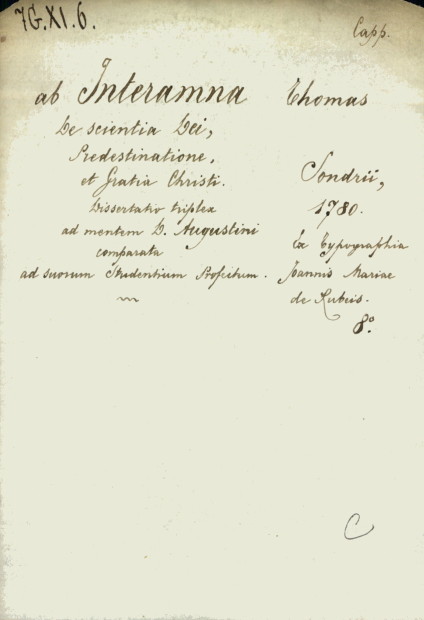 7G.XI.6.
Capp.
ab Interamna Thomas
De scientia Dei,
Predestinatione,
et Gratia Christi.
Dissertatio triplex
ad mentem D. Augustini
comparata
ad suorum Studentium Profectum.
Sondrii,
1780.
Ex Typographia
Joannis Mariae
de Rubeis.
8º
C